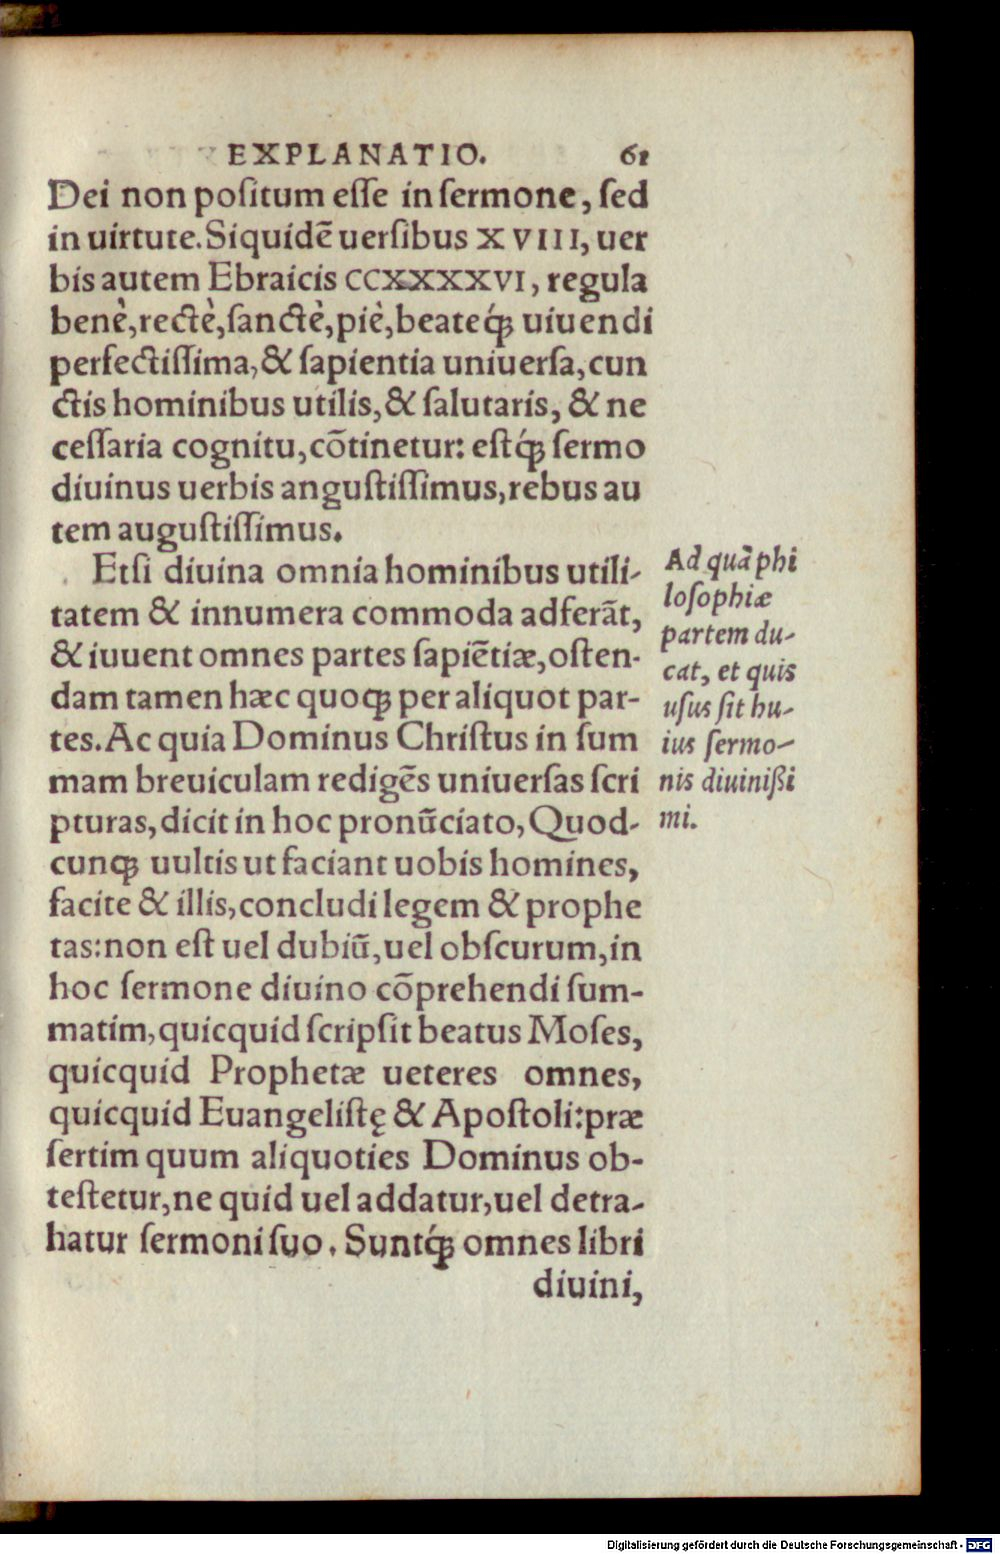 EXPLANATIO. 61
Dei non poſitum eſſe in ſermone, ſed
in uirtute. Siquidē uerſibus XVIII, uer
bis autem Ebraicis CCXXXXVI, regula
benè, rectè, ſanctè, piè, beateq́ꝫ uiuendi
perfectiſſima, & ſapientia uniuerſa, cun
ctis hominibus utilis, & ſalutaris, & ne
ceſſaria cognitu, cōtinetur: eſtq́ꝫ ſermo
diuinus uerbis anguſtiſſimus, rebus au
tem auguſtiſſimus.
Etſi diuina omnia hominibus utili-
tatem & innumera commoda adferāt,
& iuuent omnes partes ſapiētiæ, oſten-
dam tamen hæc quoqꝫ per aliquot par-
tes. Ac quia Dominus Chriſtus in ſum
mam breuiculam redigēs uniuerſas ſcri
pturas, dicit in hoc pronūciato, Quod-
cunqꝫ uultis ut faciant uobis homines,
facite & illis, concludi legem & prophe
tas: non eſt uel dubiū, uel obſcurum, in
hoc ſermone diuino cōprehendi ſum-
matim, quicquid ſcripſit beatus Moſes,
quicquid Prophetæ ueteres omnes,
quicquid Euangeliſtę & Apoſtoli: præ
ſertim quum aliquoties Dominus ob-
teſtetur, ne quid uel addatur, uel detra-
hatur ſermoni ſuo. Suntq́ꝫ omnes libri
diuini,
Ad quā phi
loſophiæ
partem du-
cat, et quis
uſus ſit hu-
ius ſermo-
nis diuinißi
mi.
Digitalisierung gefördert durch die Deutsche Forschungsgemeinschaft - DFG